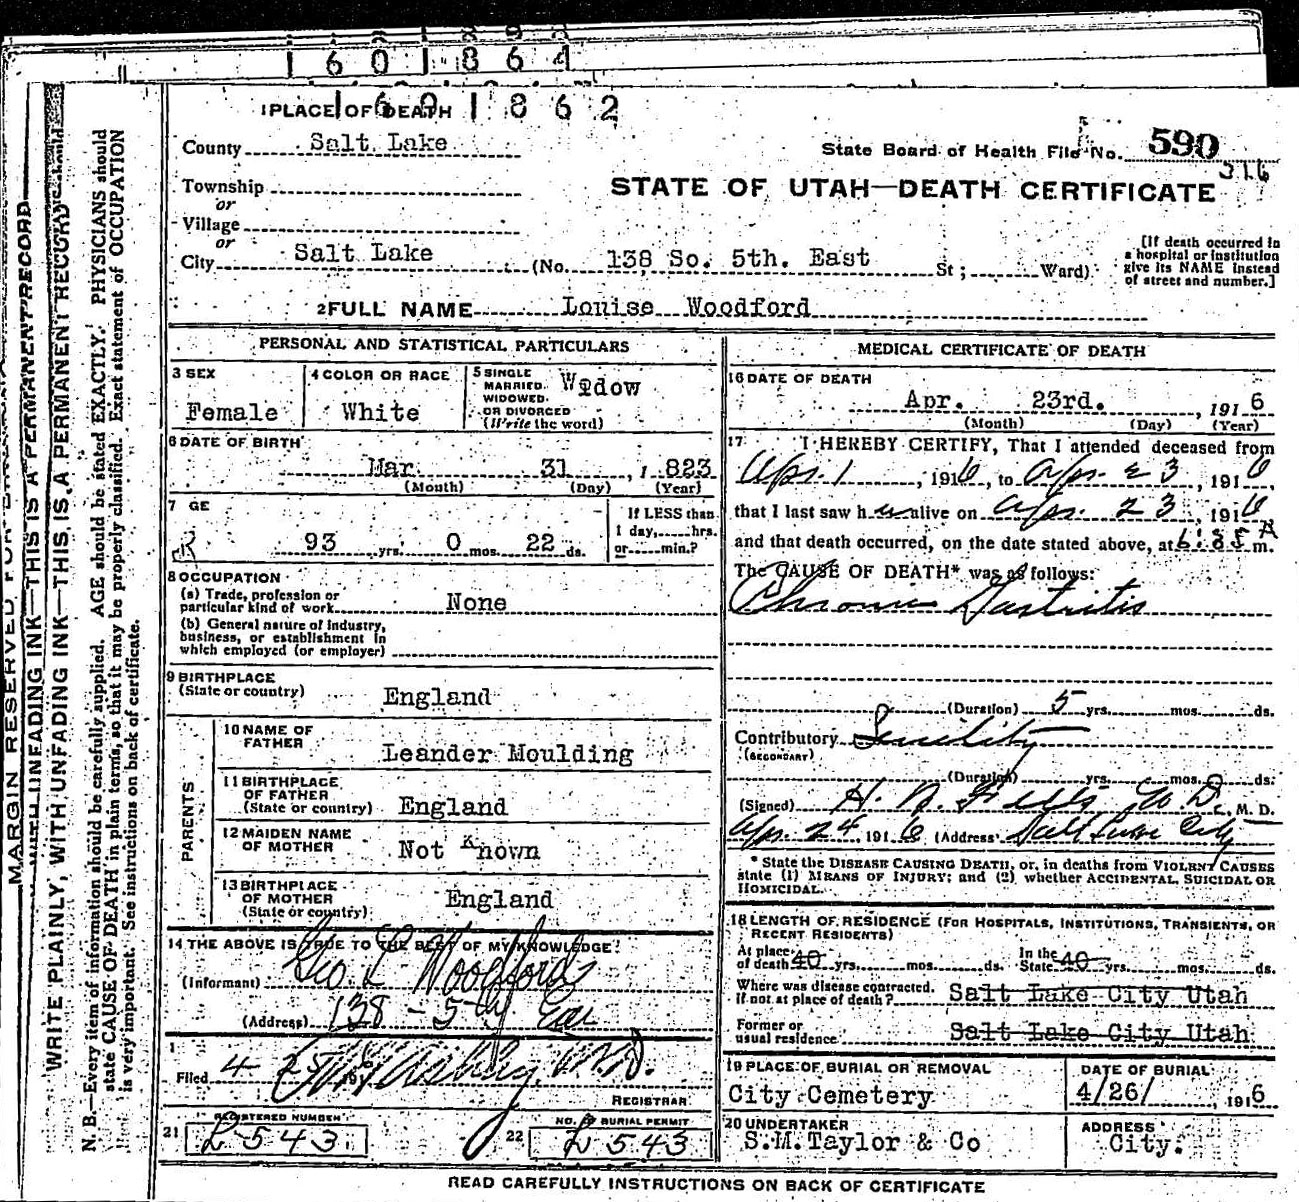 1601864
1601862
1 PLACE OF DEATH
County Salt Lake
State Board of Health File No. 590
316
Township
or
Village
or
City Salt Lake (No. 138 So. 5th. East St; Ward)
STATE OF UTAH—DEATH CERTIFICATE
[If death occurred in
a hospital or institution
give its NAME instead
of street and number.]
2 FULL NAME Louise Woodford
PERSONAL AND STATISTICAL PARTICULARS
3 SEX
Female
4 COLOR OR RACE
White
5 SINGLE
MARRIED.
WIDOWED.
OR DIVORCED
(Write the word)
Widow
6 DATE OF BIRTH
Mar 31 , 1823
(Month) (Day) (Year)
7 GE
93 yrs. 0 mos. 22 ds.
If LESS than
1 day, hrs.
or min.?
8 OCCUPATION
(a) Trade, profession or
particular kind of work None
(b) General nature of industry,
business, or establishment in
which employed (or employer)
9 BIRTHPLACE
(State or country) England
PARENTS
10 NAME OF
FATHER Leander Moulding
11 BIRTHPLACE
OF FATHER
(State or country) England
12 MAIDEN NAME
OF MOTHER Not Known
13 BIRTHPLACE
OF MOTHER
(State or country) England
14 THE ABOVE IS TRUE TO THE BEST OF MY KNOWLEDGE
(Informant) Geo L Woodford
(Address) 138 - 5th East
Filed 4 25 M.D.
REGISTRAR
21 REGISTERED NUMBER
L543
22 NO. OF BURIAL PERMIT
L543
MEDICAL CERTIFICATE OF DEATH
16 DATE OF DEATH
Apr. 23rd. , 1916
(Month) (Day) (Year)
17 I HEREBY CERTIFY, That I attended deceased from
Apr. 1 , 1916, to Apr. 23 , 1916,
that I last saw her alive on Apr. 23 , 1916
and that death occurred, on the date stated above, at m.
The CAUSE OF DEATH* was as follows:
Chronic Gastritis
(Duration) 5 yrs. mos. ds.
Contributory Senility
(SECONDARY)
(Duration) yrs. mos. ds.
(Signed) H. N. M.D., M. D.
Apr. 24, 1916 (Address) Salt Lake City
* State the DISEASE CAUSING DEATH, or, in deaths from VIOLENT CAUSES
state (1) MEANS OF INJURY; and (2) whether ACCIDENTAL, SUICIDAL OR
HOMICIDAL.
18 LENGTH OF RESIDENCE (FOR HOSPITALS, INSTITUTIONS, TRANSIENTS, OR
RECENT RESIDENTS)
At place
of death 40 yrs. mos. ds.
In the
State 40 yrs. mos. ds.
Where was disease contracted.
if not at place of death? Salt Lake City Utah
Former or
usual residence Salt Lake City Utah
19 PLACE OF BURIAL OR REMOVAL
City Cemetery
DATE OF BURIAL
4/26/ , 1916
20 UNDERTAKER
S.M.Taylor & Co
ADDRESS
City.
READ CAREFULLY INSTRUCTIONS ON BACK OF CERTIFICATE
MARGIN RESERVED FOR
WITH UNFADING INK—THIS IS A PERMANENT RECORD
WRITE PLAINLY, WITH UNFADING INK—THIS IS A PERMANENT RECORD
N. B.—Every item of information should be carefully supplied. AGE should be stated EXACTLY. PHYSICIANS should
state CAUSE OF DEATH in plain terms, so that it may be properly classified. Exact statement of OCCUPATION
is very important. See instructions on back of certificate.